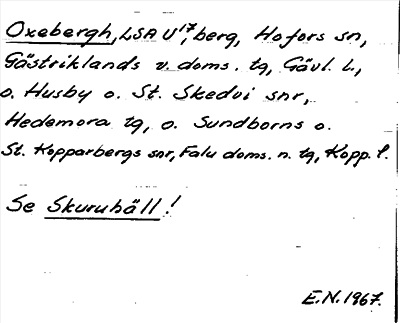 Oxebergh, LSA U¹⁷, berg, Hofors sn,
Gästriklands v. doms. tg, Gävl. l.,
o. Husby o. St. Skedvi snr,
Hedemora tg, o. Sundborns o.
St. Kopparbergs snr, Falu doms. n. tg, Kopp. l.
Se Skuruhäll!
E.N. 1967.